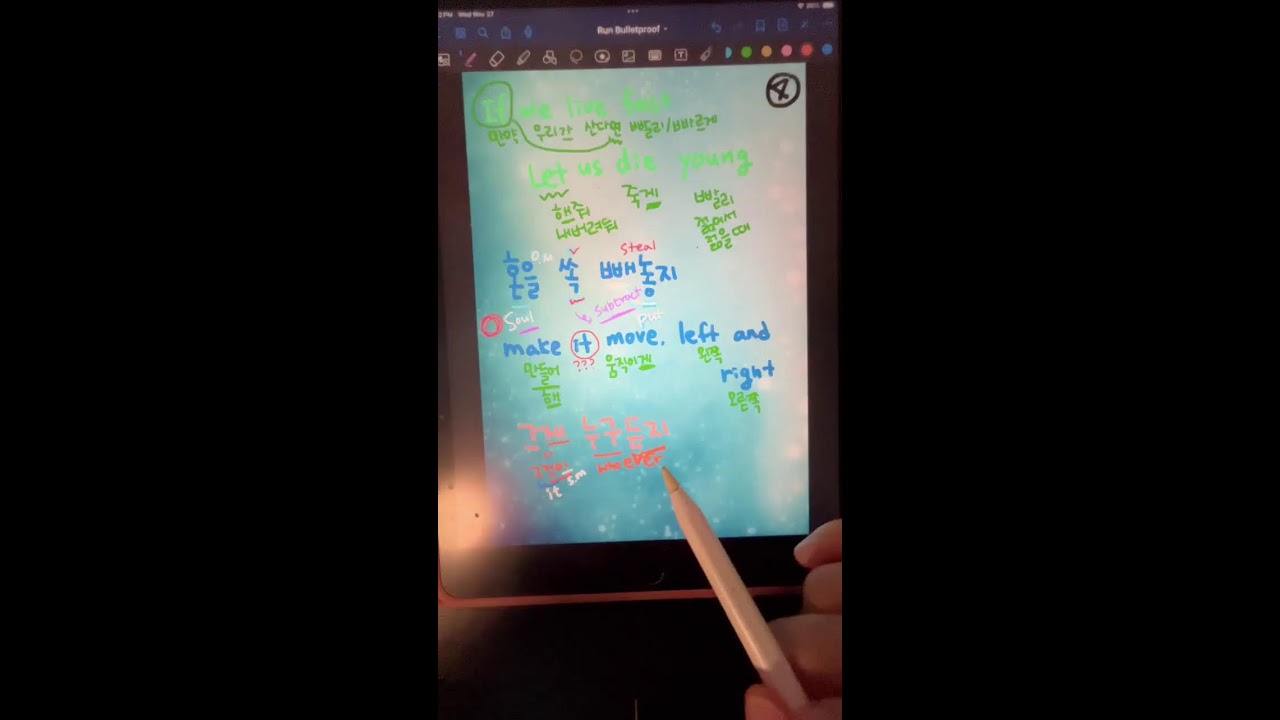 PM Wed Nov 27
Run Bulletproof
4
If we live fast
만약 우리가 산다면 빠릴리/빠르게
Let us die young
해줘 죽게 빨리
내버려둬 젊어서
젊을 때
steal
O.M
혼을 쏙 빼놓지
Soul subtract put
make it move, left and
만들어 ??? 움직이게 왼쪽
right
해 오른쪽
그게 누구든지
그것이 whoever
it S.M